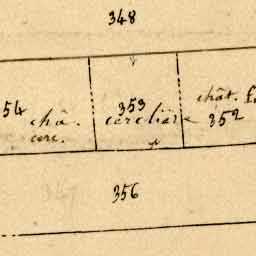 348
54 châ.
cerc.
353
cerclière
chât. f
352
356